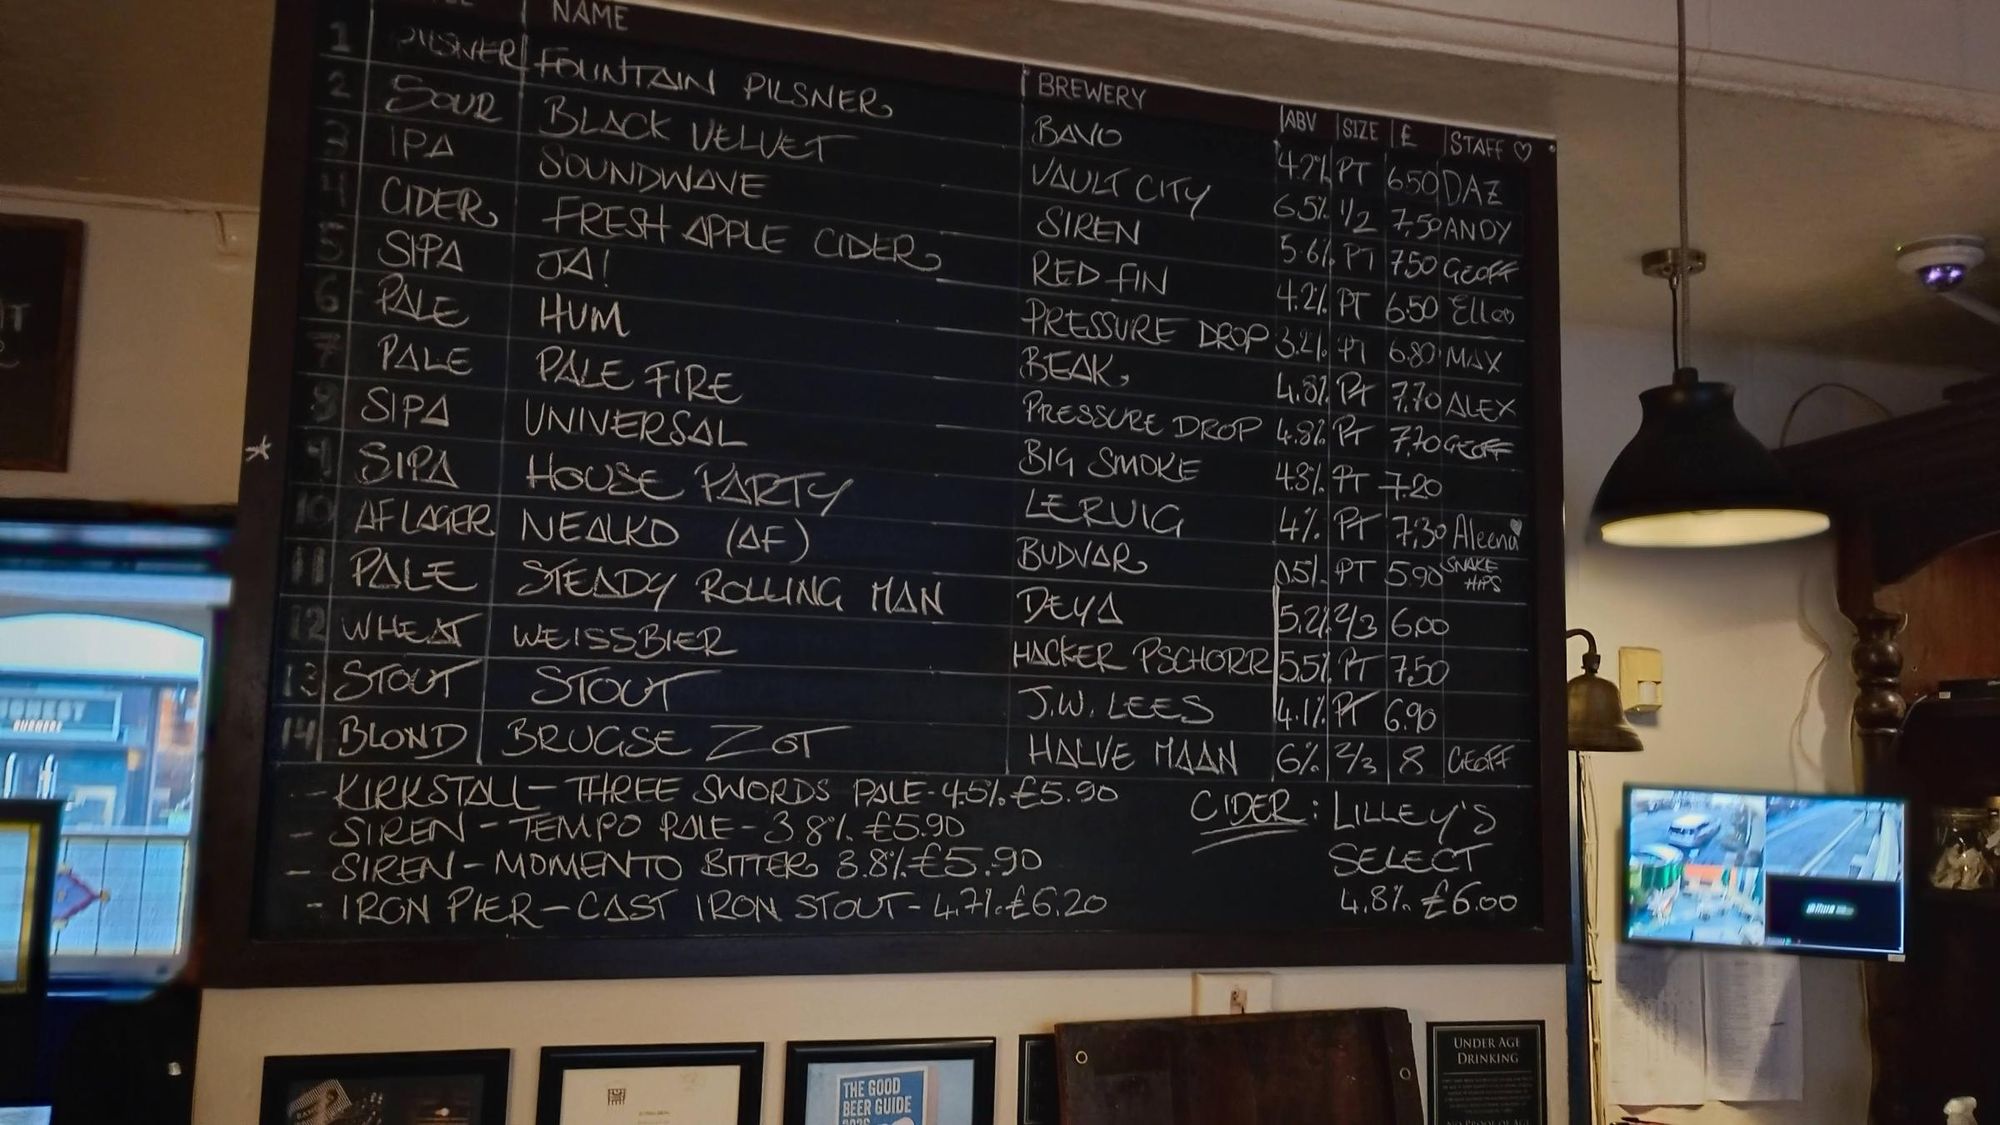 NAME BREWERY ABV SIZE £ STAFF ♡
1 PILSNER FOUNTAIN PILSNER BAVO 4.2% PT 6.50 DAZ
2 SOUR BLACK VELVET VAULT CITY 6.5% 1/2 7.50 ANDY
3 IPA SOUNDWAVE SIREN 5.6% PT 7.50 GEOFF
4 CIDER FRESH APPLE CIDER RED FIN 4.2% PT 6.50
5 SIPA JA! PRESSURE DROP 3.2% PT 6.80 MAX
6 PALE HUM BEAK 4.8% PT 7.70 ALEX
7 PALE PALE FIRE PRESSURE DROP 4.8% PT 7.70 GEOFF
8 SIPA UNIVERSAL BIG SMOKE 4.3% PT 7.20
* 9 SIPA HOUSE PARTY LERVIG 4% PT 7.30 Aleena
10 AF LAGER NEALKO (AF) BUDVAR 0.5% PT 5.90 SNAKE HIPS
11 PALE STEADY ROLLING MAN DEYA 5.2% 2/3 6.00
12 WHEAT WEISSBIER HACKER PSCHORR 5.5% PT 7.50
13 STOUT STOUT J.W. LEES 4.1% PT 6.90
14 BLOND BRUGSE ZOT HALVE MAAN 6% 2/3 8 GEOFF
- KIRKSTALL - THREE SWORDS PALE - 4.5% £5.90
- SIREN - TEMPO PALE - 3.8% £5.90
- SIREN - MOMENTO BITTER 3.8% £5.90
- IRON PIER - CAST IRON STOUT - 4.7% £6.20
CIDER: LILLEY'S
SELECT
4.8% £6.00
HONEST
BURGERS
THE GOOD
BEER GUIDE
UNDER AGE
DRINKING